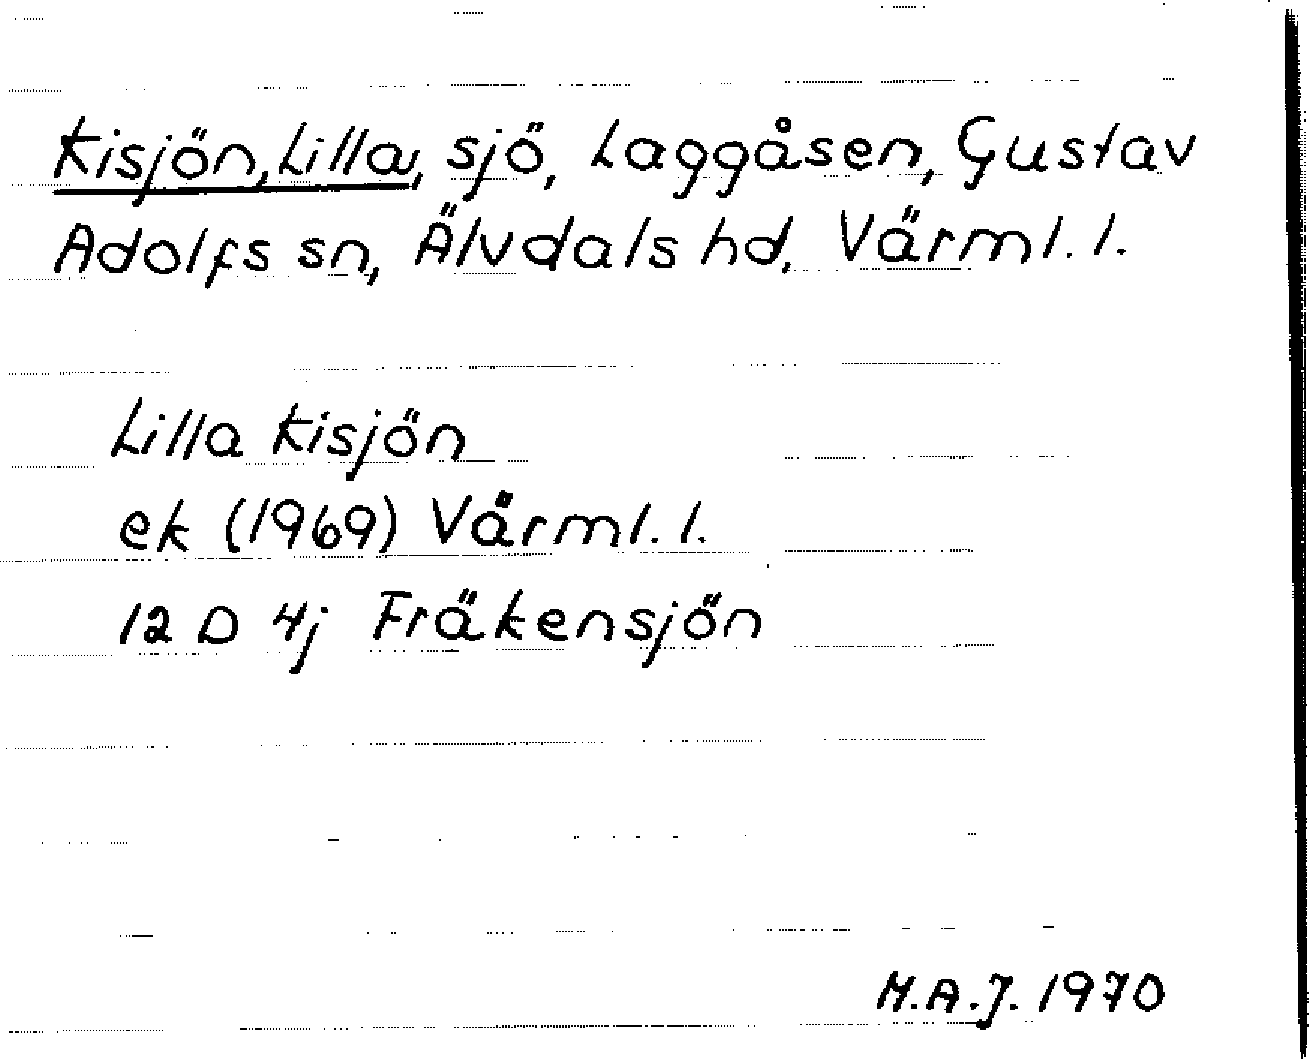 Kisjön, Lilla, sjö, Laggåsen, Gustav
Adolfs sn, Älvdals hd, Värml. l.
Lilla Kisjön
ek (1969) Värml. l.
12 D 4j Fräkensjön
M.A.J. 1970